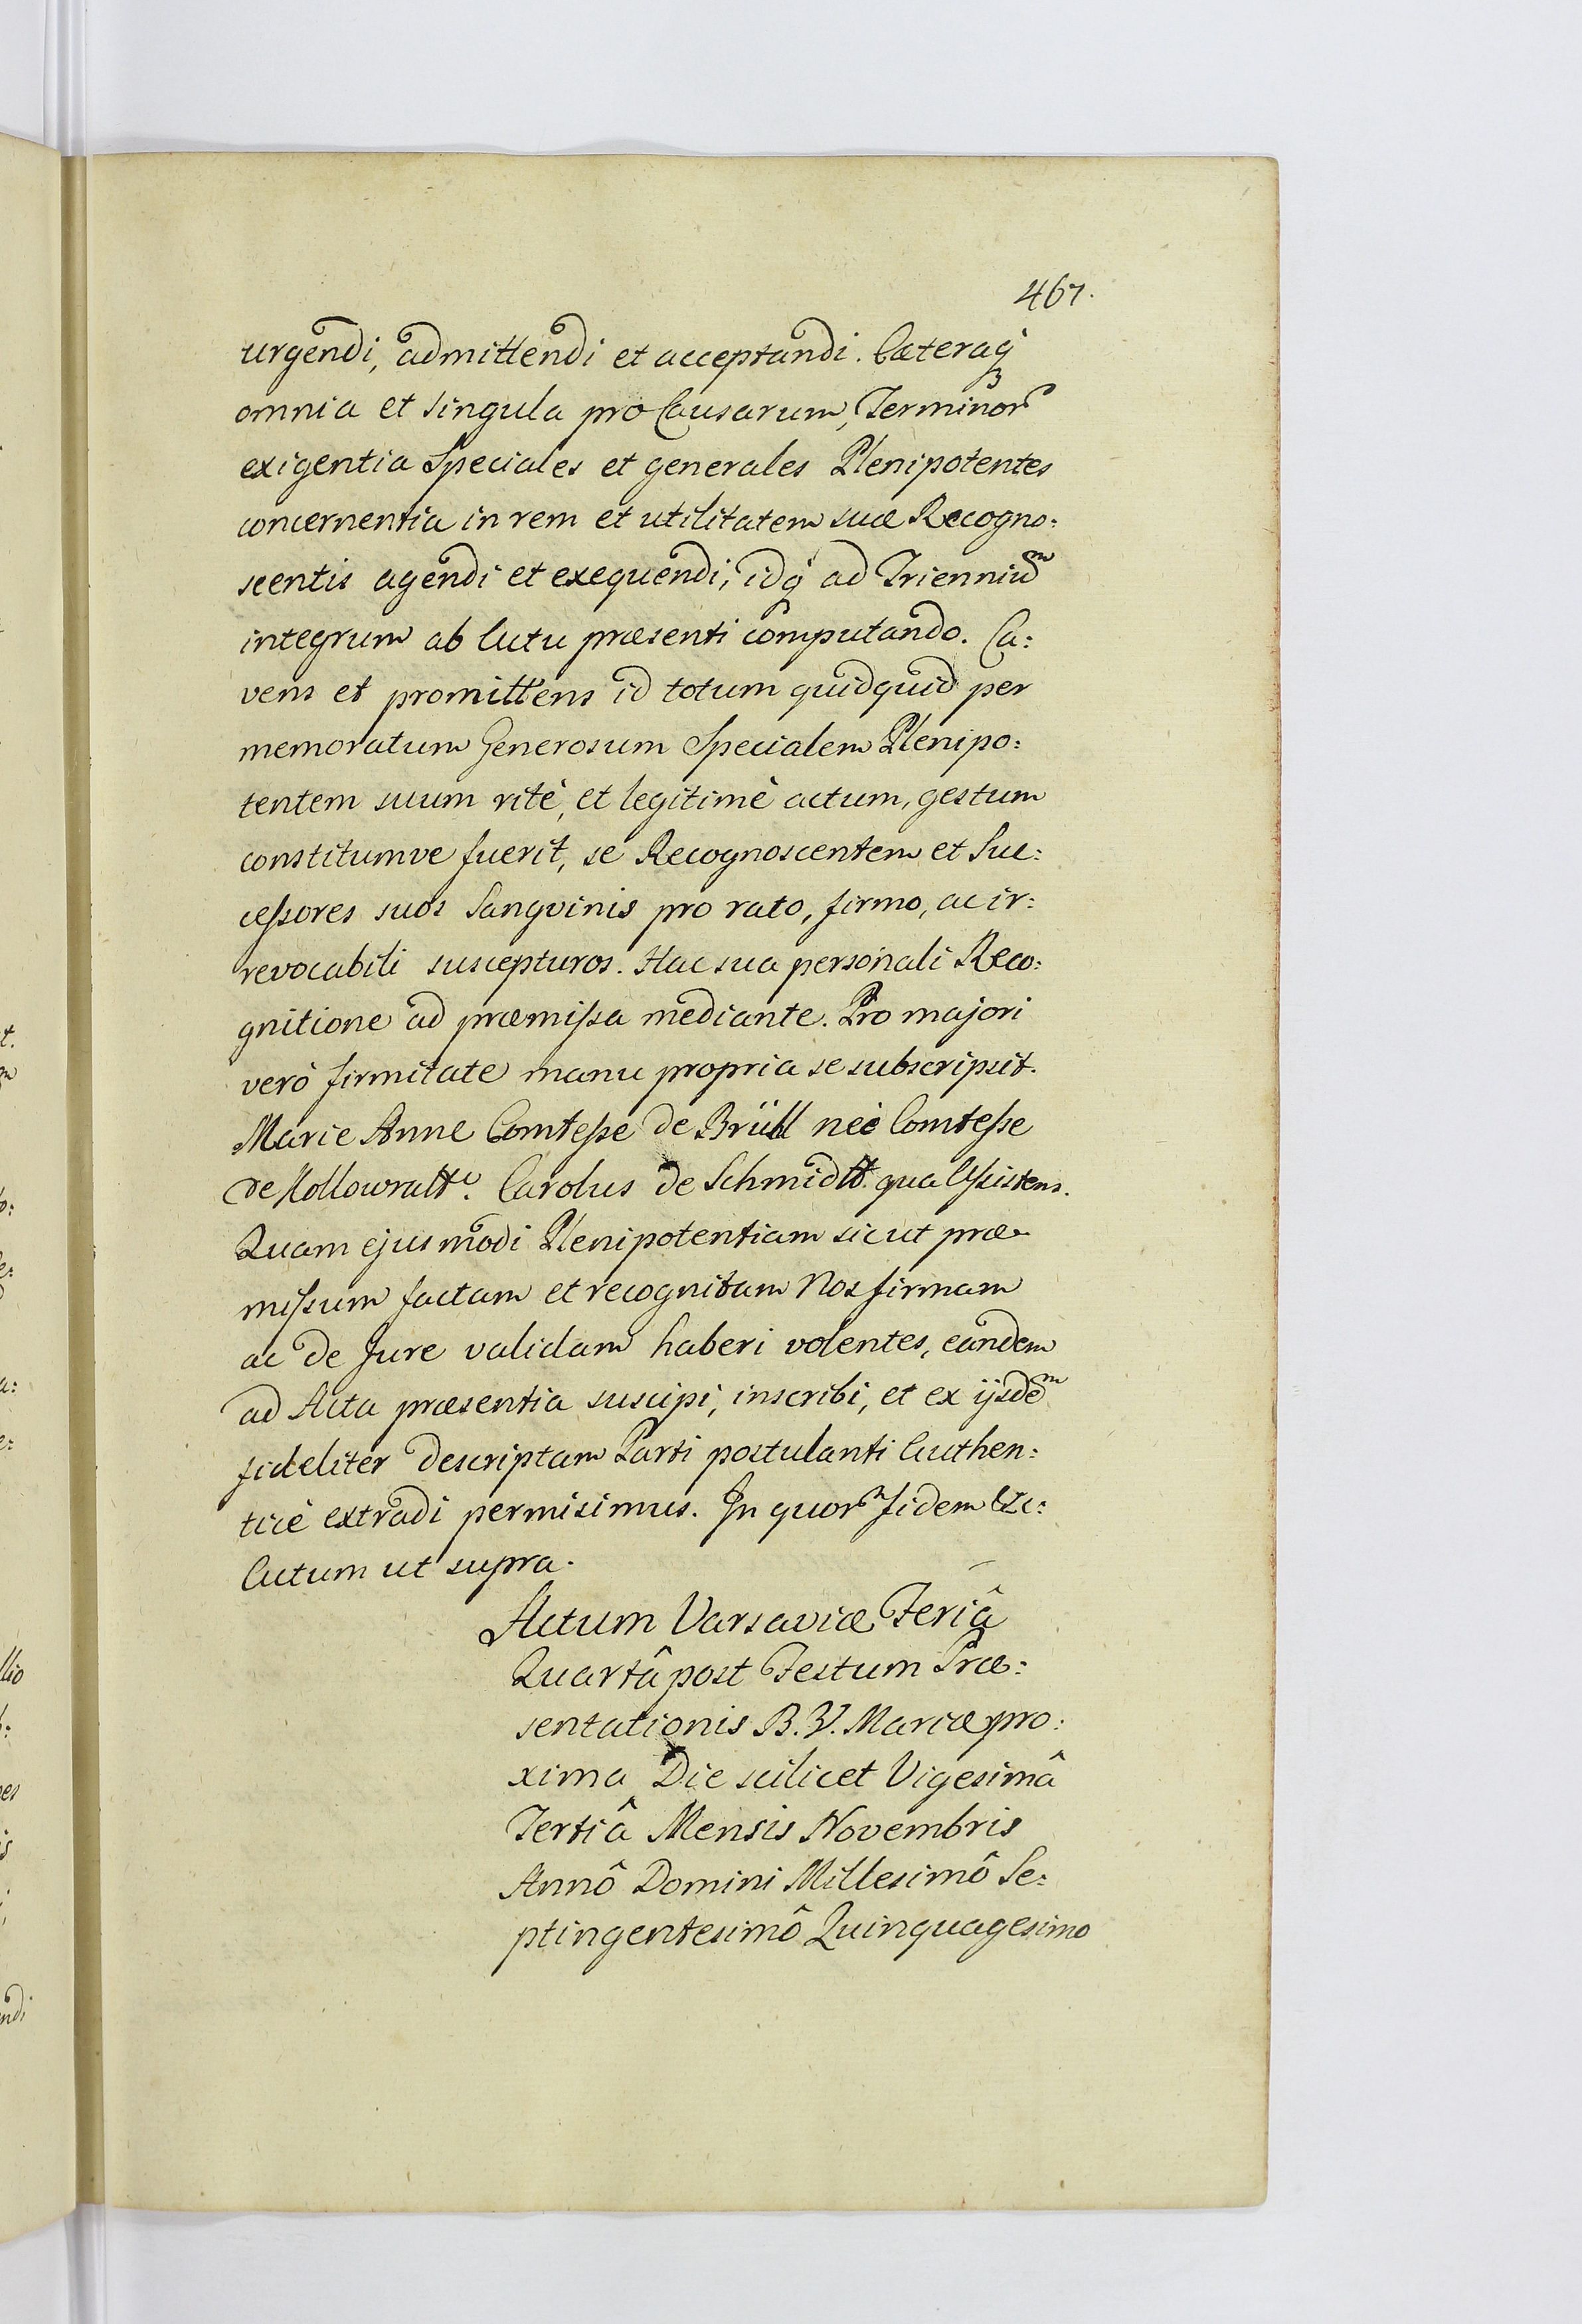 467.
urgendi, admittendi et acceptandi. Cæteraq́
omnia et singula pro Causarum, Terminor̃
exigentia Speciales et generales Plenipotentes
concernentia in rem et utilitatem suæ Recogno:
scentis agendi et exequendi, idq́ ad Trienniũm
integrum ab Actu præsenti computando. Ca:
vens et promittens id totum quidquid per
memoratum Generosum Specialem Plenipo:
tentem suum ritè, et legitimè actum, gestum
constitumve fuerit, se Recognoscentem et Suc:
ceſsores suos Sangvinis pro rato, firmo, ac ir:
revocabili suscepturos. Hac sua personali Reco:
gnitione ad præmiſsa mediante. Pro majori
verò firmitate manu propria se subscripsit.
Marie Anne Comteſse de Brühl neè Comteſse
de Kollowratt. Carolus de Schmidtt qua Aſsistens.
Quam ejusmodi Plenipotentiam sicut præ
miſsum factam et recognitam Nos firmam
ac de Jure validam haberi volentes, eandem
ad Acta præsentia suscipi, inscribi, et ex ijsdem
fideliter descriptam Parti postulanti Authen:
ticè extradi permisimus. In quor̃ fidem &c:
Actum ut supra.
Actum Varsaviæ Feriâ
Quartâ post Festum Præ:
sentationis B. V. Mariæ pro:
xima Die scilicet Vigesimâ
Tertiâ Mensis Novembris
Annô Domini Millesimô Se:
ptingentesimô Quinquagesimo